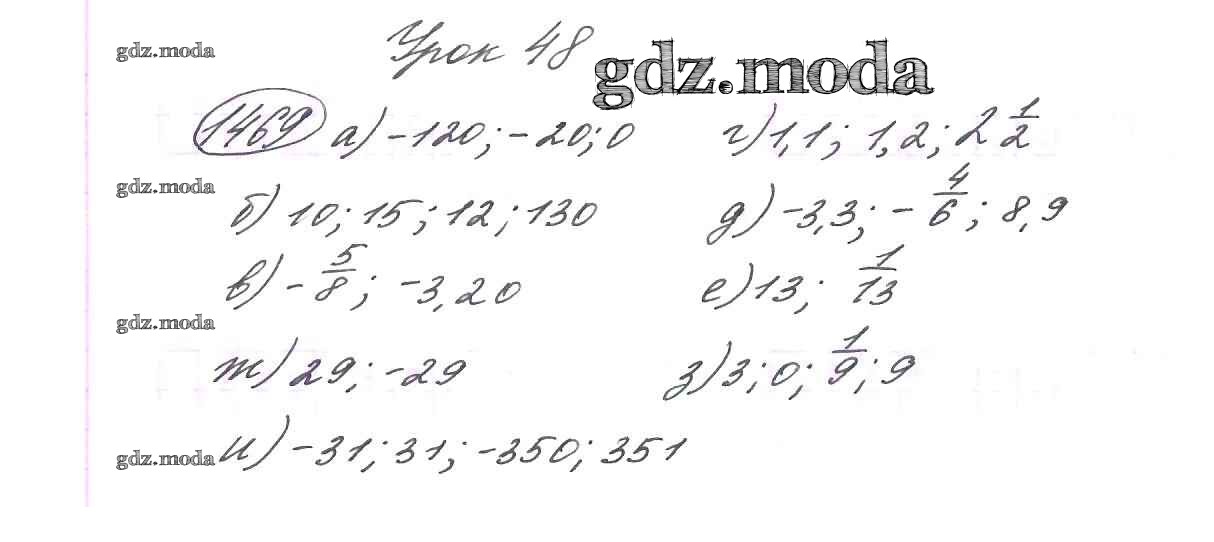 gdz.moda Урок 48 gdz.moda
1469 а) -120; -20; 0 г) 1,1; 1,2; 2 1/2
gdz.moda
б) 10; 15; 12; 130 д) -3,3; - 4/6; 8,9
в) - 5/8; -3,20 е) 13; 1/13
gdz.moda
ж) 29; -29 з) 3; 0; 1/9; 9
gdz.moda и) -31; 31; -350; 351